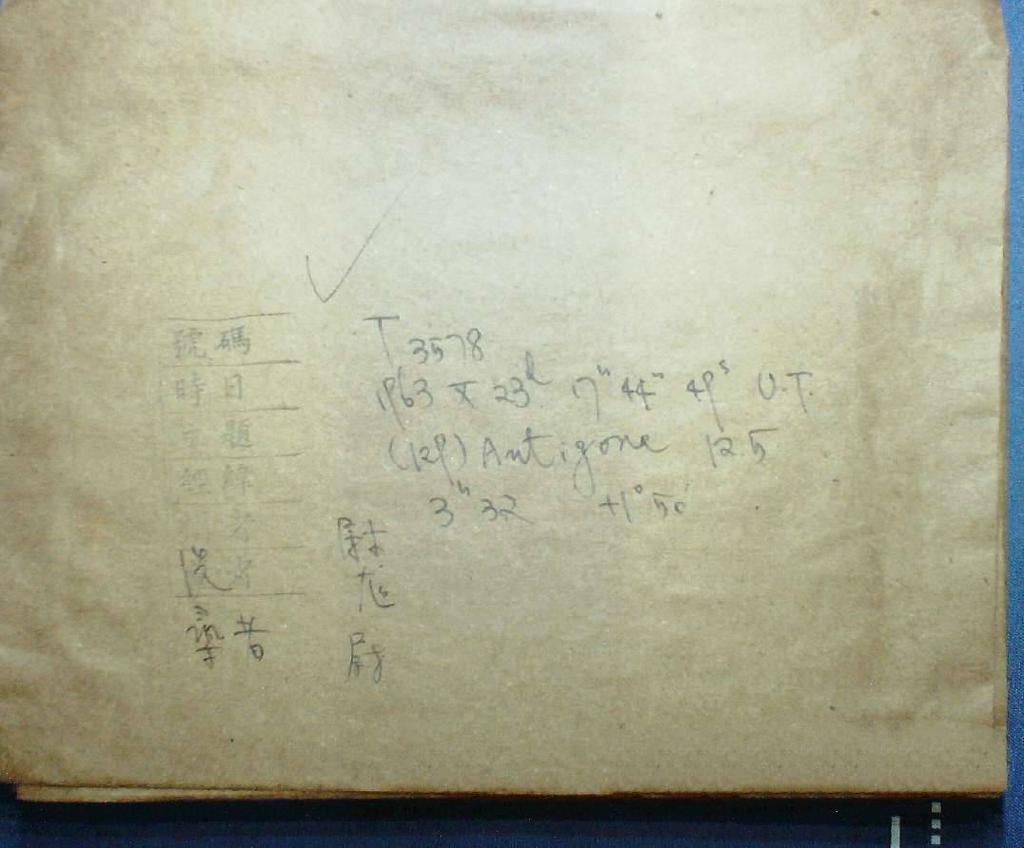 號碼 T 3578
時日 1963 X 23d 17h 44m 49s U.T.
主題 (129) Antigone 125
經緯 3h 32 +1° 50'
尉
尉